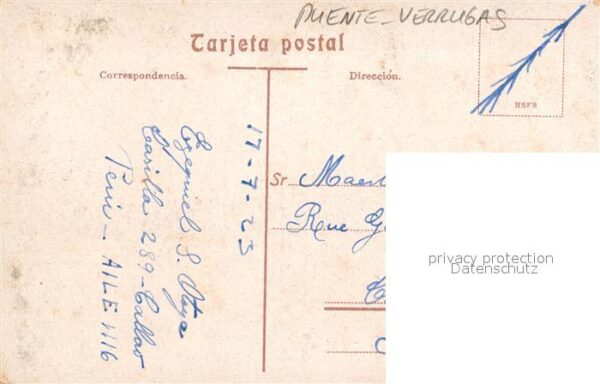 PUENTE - VERRUGAS
Tarjeta postal
Correspondencia.
Dirección.
HSFS
17-7-23
Ezequiel S.
Casilla 289-Callao
Perú - AILE 1116
Sr
Rue
privacy protection
Datenschutz